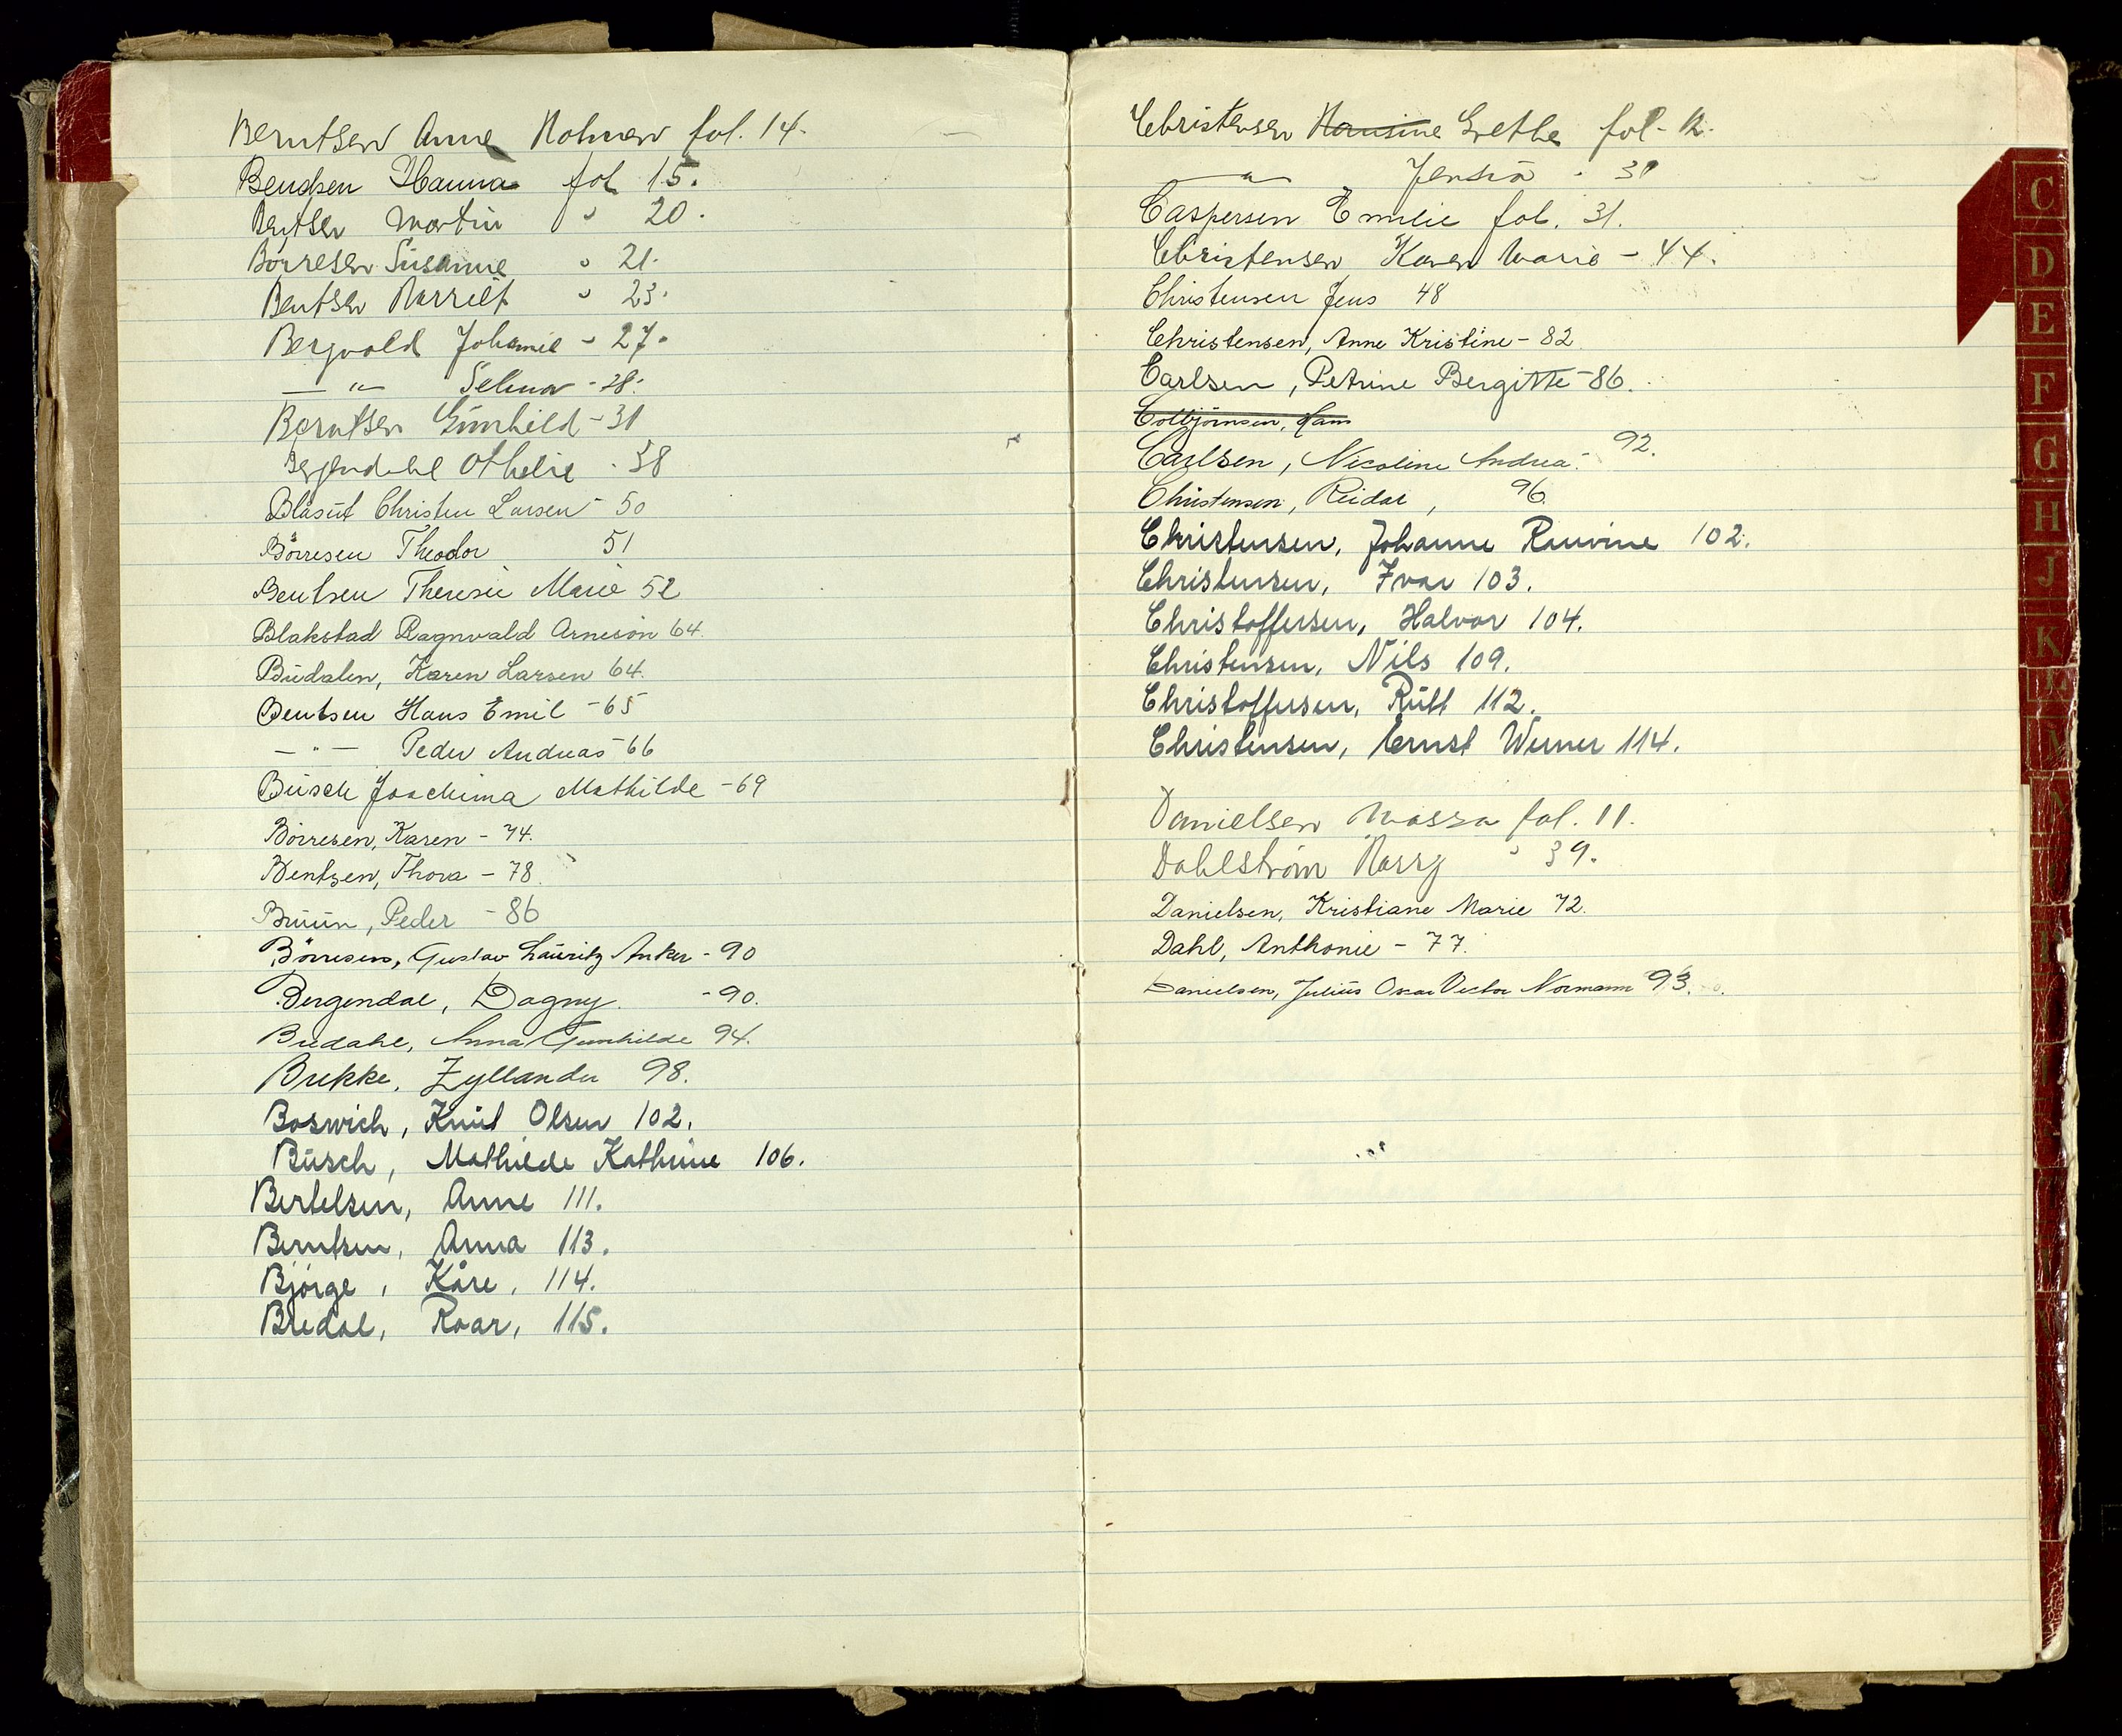 Berntsen Anne Holmen fol. 14.
Bendsen Hanna fol 15.
Bentsen Martin " 20.
Börresen Süsanne " 21.
Bentsen Harriet " 23.
Bergvold Johanne - 27.
— " — Selma - 28.
Berntsen Günhild - 31
Bergendahl Othelie - 38
Blåsüt Christen Larsen - 50
Börresen Theodor 51
Bentsen Theresie Marie 52
Blakstad Ragnvald Arneson 64.
Büdalen, Karen Larsen 64.
Bentsen Hans Emil - 65
— " — Peder Andreas - 66
Büsch Joachima Mathilde - 69
Börresen, Karen - 74.
Bentsen, Thora - 78.
Bruün, Peder - 86
Börresen, Gustav Laüritz Anker - 90
Bergendal, Dagny. - 90.
Budahl, Anna Gunhilde 94.
Bukke, Zyllander 98.
Boswich, Knüt Olsen 102.
Büsch, Mathilde Kathrine 106.
Bertelsen, Anne 111.
Berntsen, Anna 113.
Bjørge, Kåre, 114.
Bredal, Roar, 115.
Christensen Hansine Grethe fol. 12.
— " — Jensia - 31
Caspersen Emilie fol. 31.
Christensen Karen Marie - 44.
Christensen Jens 48
Christensen, Anne Kristine - 82
Carlsen, Petrine Bergitte - 86.
Colbjörnsen, Hans
Carlsen, Nicoline Andrea - 92.
Christensen, Reidar, 96.
Christensen, Johanne Rauvine 102.
Christensen, Ivar 103.
Christoffersen, Halvor 104.
Christensen, Nils 109.
Christoffersen, Rütt 112.
Christensen, Ernst Werner 114.
Danielsen Massa fol. 11.
Dahlström Harry " 39.
Danielsen, Kristiane Marie 72.
Dahl, Anthonie - 77.
Danielsen, Juliüs Oscar Victor Normann 93.
C
D
E
F
G
H
J
K
L
M